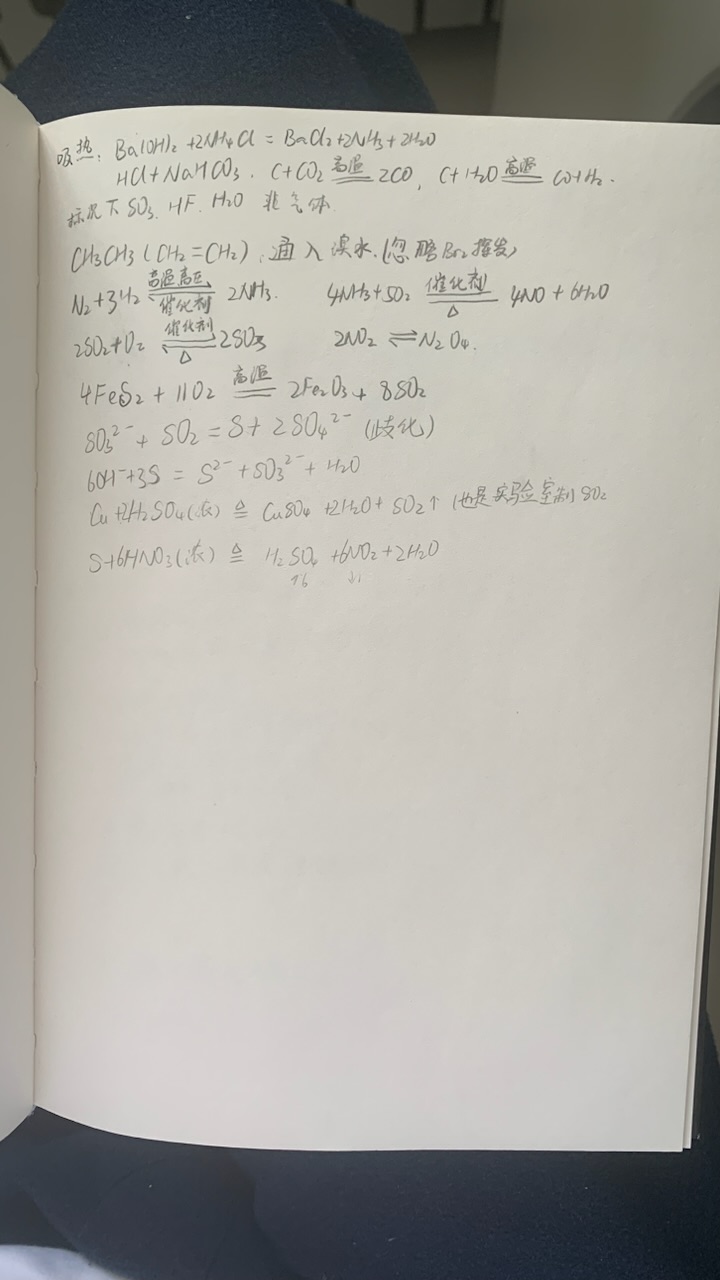 吸热: Ba(OH)₂ +2NH₄Cl = BaCl₂+2NH₃+2H₂O
HCl+NaHCO₃. C+CO₂ 高温 2CO, C+H₂O 高温 CO+H₂.
标况下 SO₃. HF. H₂O 非气体
CH₃CH₃ (CH₂=CH₂), 通入溴水.(忽略Br₂挥发)
N₂+3H₂ 高温高压 ⇌ 催化剂 2NH₃. 4NH₃+5O₂ 催化剂 △ 4NO+6H₂O
2SO₂+O₂ 催化剂 ⇌ △ 2SO₃ 2NO₂ ⇌ N₂O₄.
4FeS₂ + 11O₂ 高温 2Fe₂O₃ + 8SO₂
SO₃²⁻ + SO₂ = S + 2SO₄²⁻ (歧化)
6OH⁻+3S = S²⁻ + SO₃²⁻ + H₂O
Cu+2H₂SO₄(浓) △ CuSO₄ +2H₂O+ SO₂↑ (也是实验室制SO₂
S+6HNO₃(浓) △ H₂SO₄ +6NO₂+2H₂O
↑6 ↓1